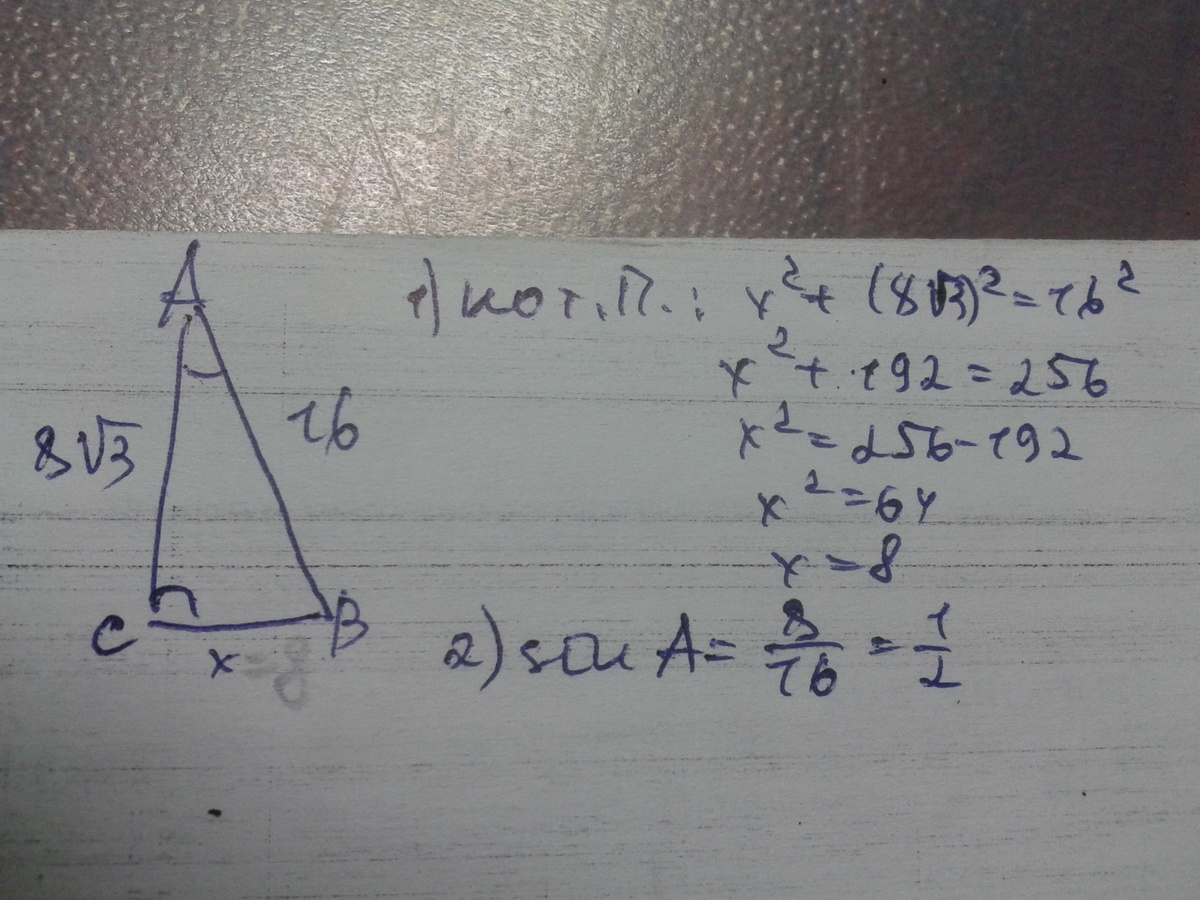 A
8√3
16
C
B
x = 8
1) по т.П.: x² + (8√3)² = 16²
x² + 192 = 256
x² = 256 - 192
x² = 64
x = 8
2) sin A = 8/16 = 1/2